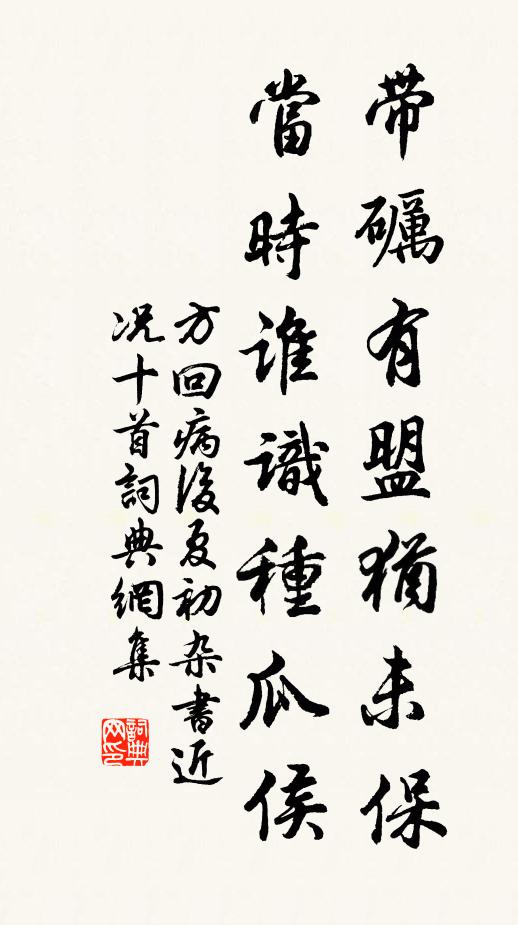 带礪有盟猶未保
當時誰識種瓜侯
方回病後夏初杂書近
况十首詞典網集
詞典网印